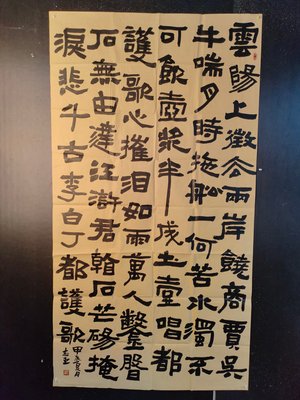 雲陽上徵去兩岸饒商賈吳
牛喘月時拖舩一何苦水濁不
可飲壺漿半成土壹唱都
護歌心摧泪如雨萬人鑿盤
石無由達江滸君看石芒碭掩
淚悲千古李白丁都護歌
甲辰夏月